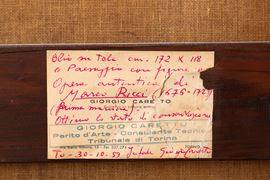 Olio su Tela cm. 172 x 118
"Paesaggio con figure"
Opera autentica di
Marco Ricci (1675-1729
GIORGIO CARETTO
(prima maniera)
Ottimo lo stato di conservazione
GIORGIO CARETTO
Perito d'Arte - Consulente Tecnico
Tribunale di Torino
To - 30-10. 59